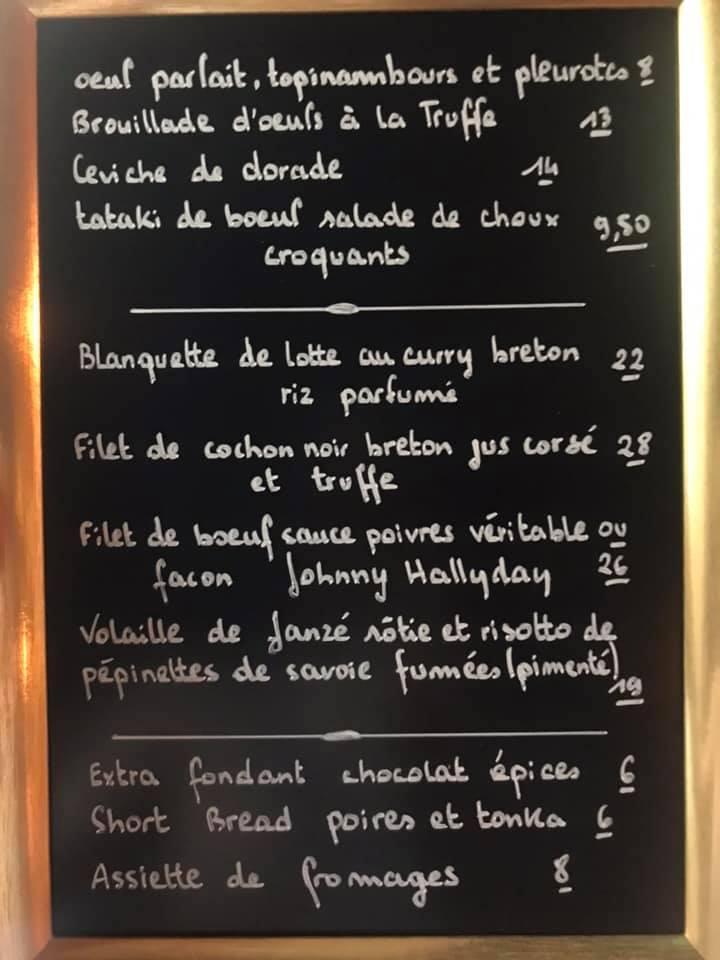 oeuf parfait, topinambours et pleurotes 8
Brouillade d'oeufs à la Truffe 13
Ceviche de dorade 14
tataki de boeuf salade de choux 9,50
croquants
Blanquette de lotte au curry breton 22
riz parfumé
Filet de cochon noir breton jus corsé 28
et truffe
Filet de boeuf sauce poivres véritable ou
facon Johnny Hallyday 26
Volaille de Janzé rôtie et risotto de
pépinettes de savoie fumées (pimenté) 19
Extra fondant chocolat épices 6
Short Bread poires et tonka 6
Assiette de fromages 8